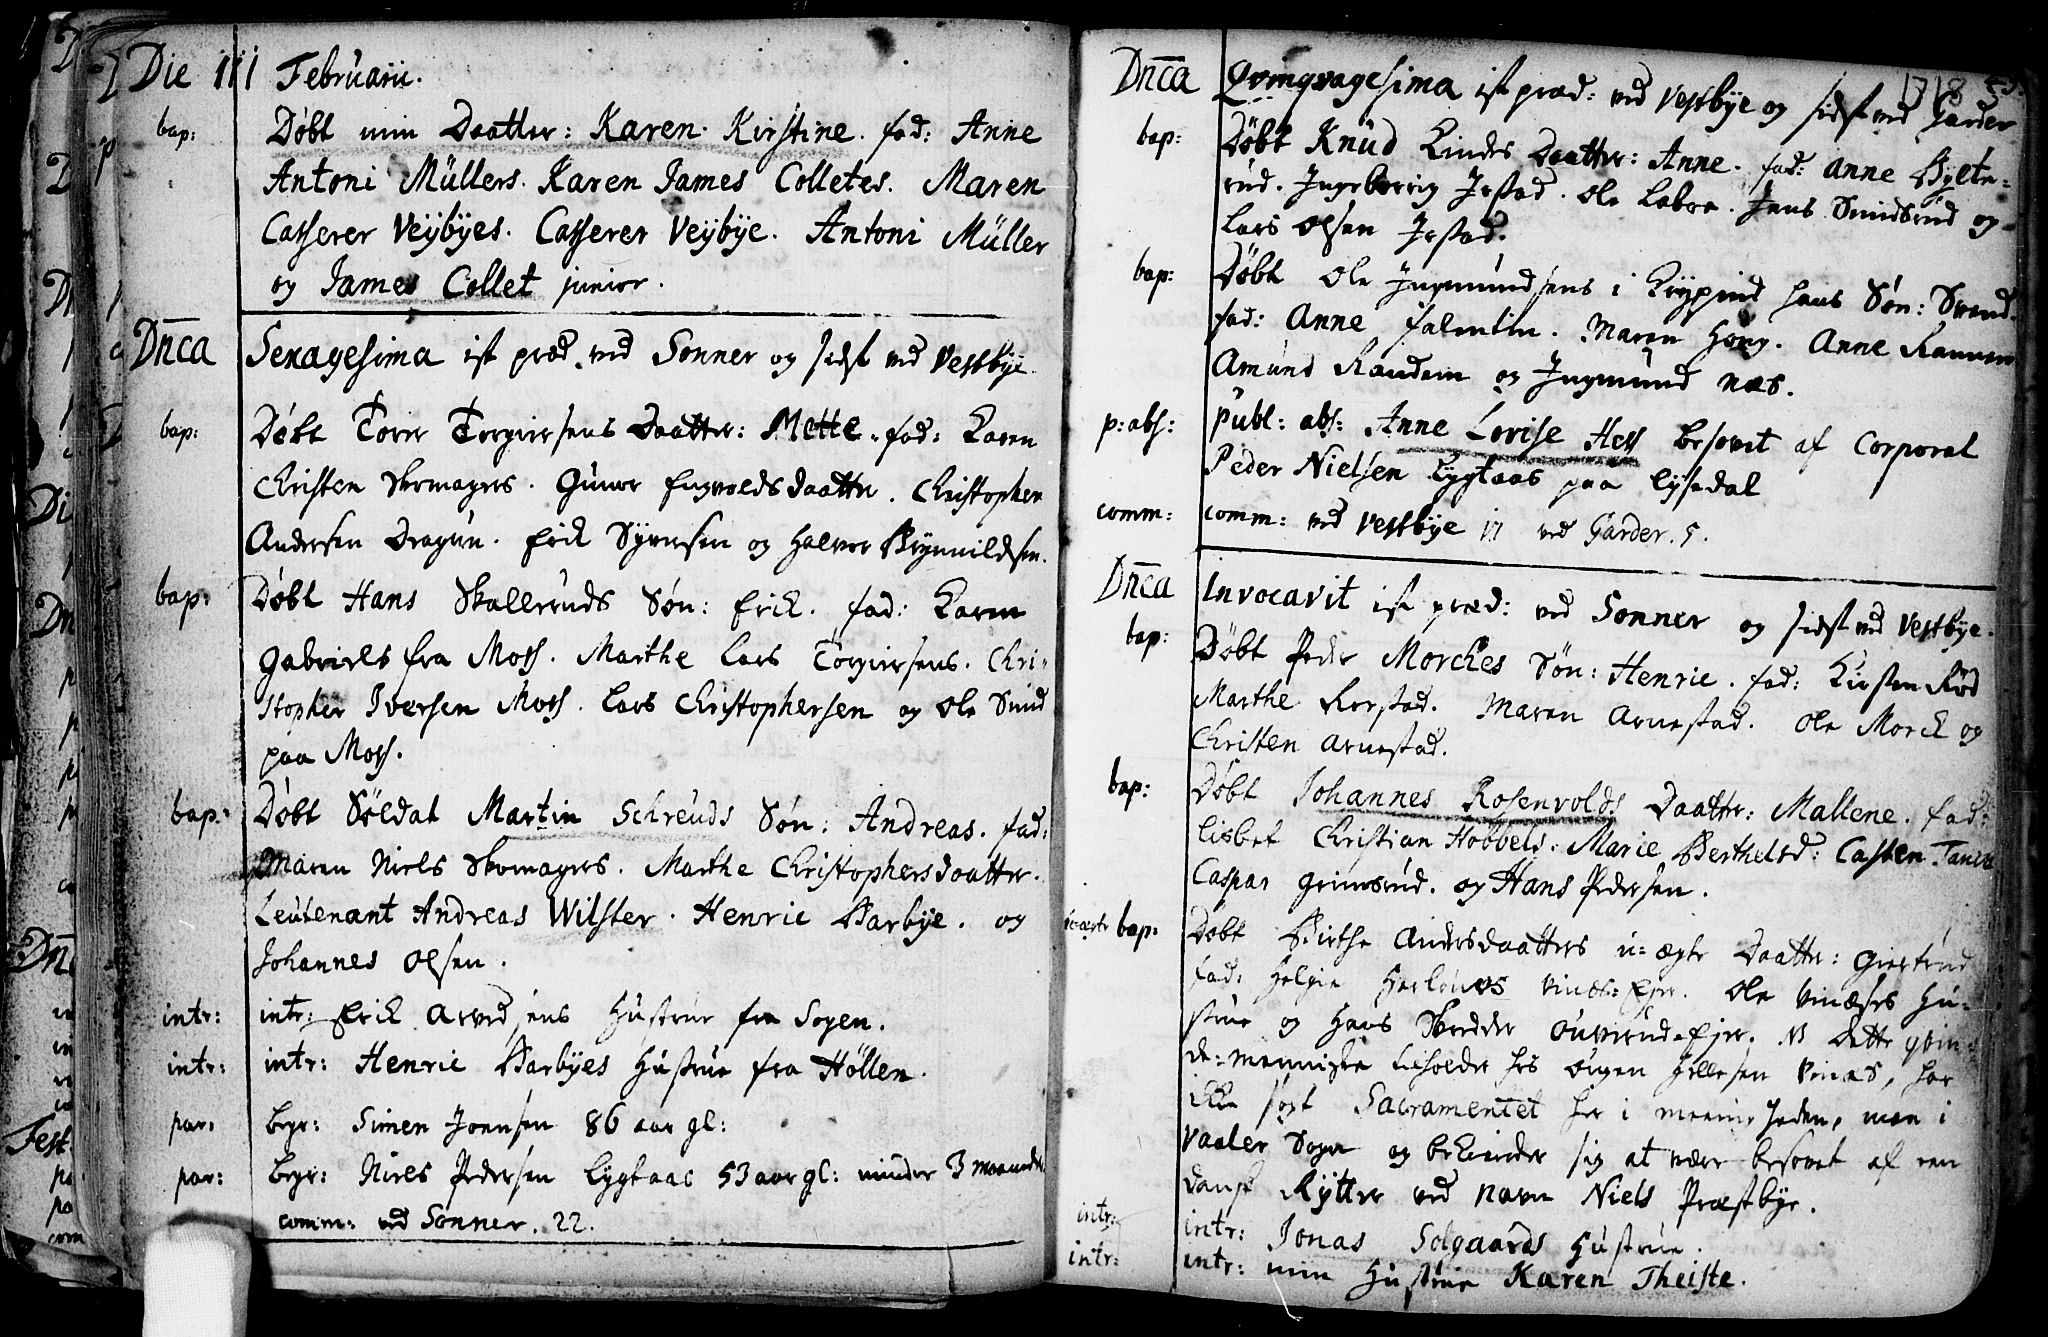 Die 111 Februarii.
bap: Döbt min Daatter: Karen Kirstine. fad: Anne
Antoni Müllers. Karen James Colletes. Maren
Casserer Veÿbÿes. Casserer Veÿbÿe. Antoni Müller
og James Collet junior.
Dn̄ca Sexagesima ist præd. ved Sonner og sidst ved Vestbÿe
bap: Döbt Torer Torgiersens Daatter: Mette. fad: Karen
Christen Skomagers. Guner Engvoldsdaatter. Christopher
Andersen Dragün. Erik Syversen og Halvor Brynnildsen.
bap: Döbt Hans Skallerüds Sön: Erik. fad: Karen
Gabriels fra Moss. Marthe Lars Torgiersens. Chri-
stopher Iversen Moss. Lars Christophersen og Ole Smid
paa Moss.
bap: Döbt Söldat Martin Schreüds Sön: Andreas. fad:
Maren Niels Skomagers. Marthe Christophersdaatter.
Leutenant Andreas Wilster. Henric Barbÿe. og
Johannes Olsen.
intr: intr: Erik Arvedsens Hüstrue fra Sogen.
intr: intr: Henric Barbÿes Hüstrue fra Höllen.
par: begr: Simen Joensen 86 aar gl:
par: begr: Niels Pedersen Lygtaas 53 aar gl: minder 3 maaneder
comm: ved Sonner. 22.
1718
Dn̄ca Qvinqvagesima ist præd: ved Vestbÿe og sidst ved Garder
bap: Döbt Knüd Lindes Daatter: Anne. fad: Anne
rüd. Ingeborrig Irstad. Ole Labroe. Jens Smidsrüd og
Lars Olsen Irstad.
bap: Döbt Ole Ingmündsens i hans Sön: Svend.
fad: Anne. Maren Houg. Anne Ramm
Amünd Randem og Ingmünd Næs.
p: abs: Publ: abs: Anne Lovise Hess besovet af Corporal
Peder Nielsen Lygtaas paa Lysedal
comm: comm: ved Vestbÿe 17 ved Garder. 5.
Dn̄ca Invocavit ist præd: ved Sonner og sidst ved Vestbÿe.
bap: Döbt Peder Morckes Sön: Henric. fad: Kirsten Röd
Marthe Rerstad. Maren Arnestad. Ole Morck og
Christen Arnestad.
bap: Döbt Johannes Rosenvolds Daatter: Mallene. fad:
Lisbet Christian Hobbels. Marie Berthelsd: Casten Tanen
Caspar Grimsrüd. og Hans Pedersen.
bap: Döbt Birthe Andersdaatters u-ægte Daatter: Giertrüd
fad: Helgie Ole Vinæses Hu-
strue og Hans Skredder. NB Dette qvin-
de-menniske, har
icke sögt Sacramentet her i meenigheden, men i
Vaaler Sogn og bekiender sig at være besovet af een
Dansk Rÿtter ved navn Niels Præstbÿe.
intr: intr: Jonas Solgaards Hüstrue.
intr: intr: min Hüstrüe Karen Theiste.